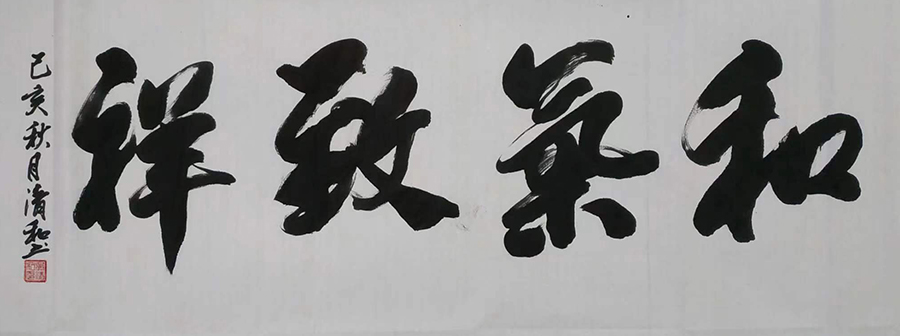 和氣致祥
己亥秋月清